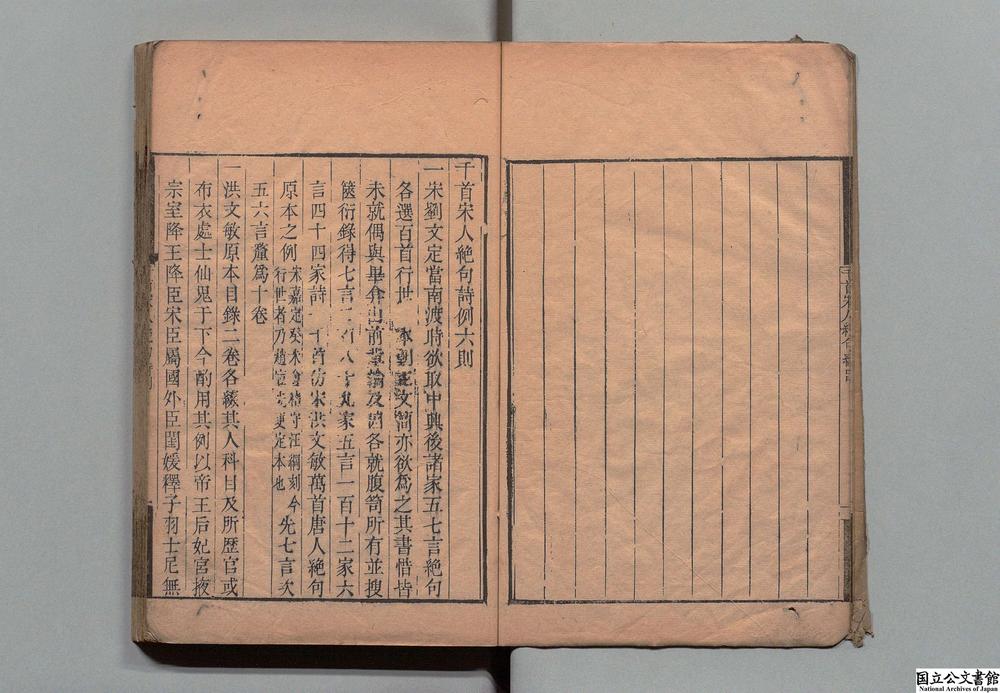 千首宋人絶句詩例六則
一宋劉文定當南渡時欲取中興後諸家五七言絶句
各選百首行世 本朝王文簡亦欲爲之其書惜皆
未就偶與畢介山前輩論及因各就腹笥所有並搜
篋衍錄得七言二百八十九家五言一百十二家六
言四十四家詩一千首仿宋洪文敏萬首唐人絶句
原本之例
宋嘉定癸未會稽守汪綱刻今
行世者乃趙宦光更定本也
先七言次
五六言釐爲十卷
一洪文敏原本目錄二卷各綴其人科目及所歷官或
布衣處士仙鬼于下今酌用其例以帝王后妃宮掖
宗室降王降臣宋臣屬國外臣閨媛釋子羽士尼無
国立公文書館
National Archives of Japan